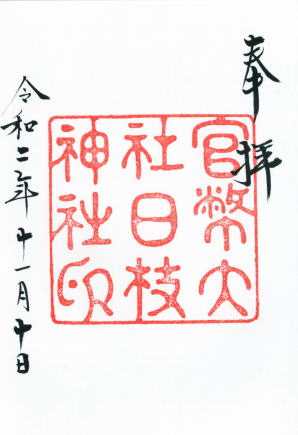 奉拝
官幣大
社日枝
神社印
令和二年十一月十日